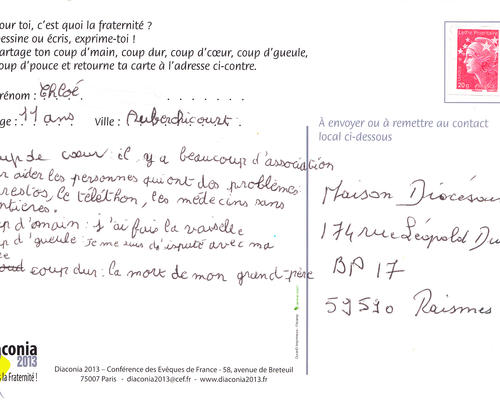 our toi, c'est quoi la fraternité ?
essine ou écris, exprime-toi !
artage ton coup d'main, coup dur, coup d'cœur, coup d'gueule,
oup d'pouce et retourne ta carte à l'adresse ci-contre.
rénom : Chloé
ge : 11 ans ville : Auberchicourt
up de cœur : il y a beaucoup d'association
r aider les personnes qui ont des problèmes
restos, le téléthon, les médecins sans
ntières.
p d'main : j'ai fait la vaiselle
p d'gueule : Je me suis disputé avec ma
coup dur : la mort de mon grand-père
Lettre Prioritaire
20g
À envoyer ou à remettre au contact
local ci-dessous
Maison Diocésai
174 rue Léopold Du
BP 17
59590 Raismes
aconia
2013
s la Fraternité !
Diaconia 2013 – Conférence des Evêques de France - 58, avenue de Breteuil
75007 Paris - diaconia2013@cef.fr - www.diaconia2013.fr